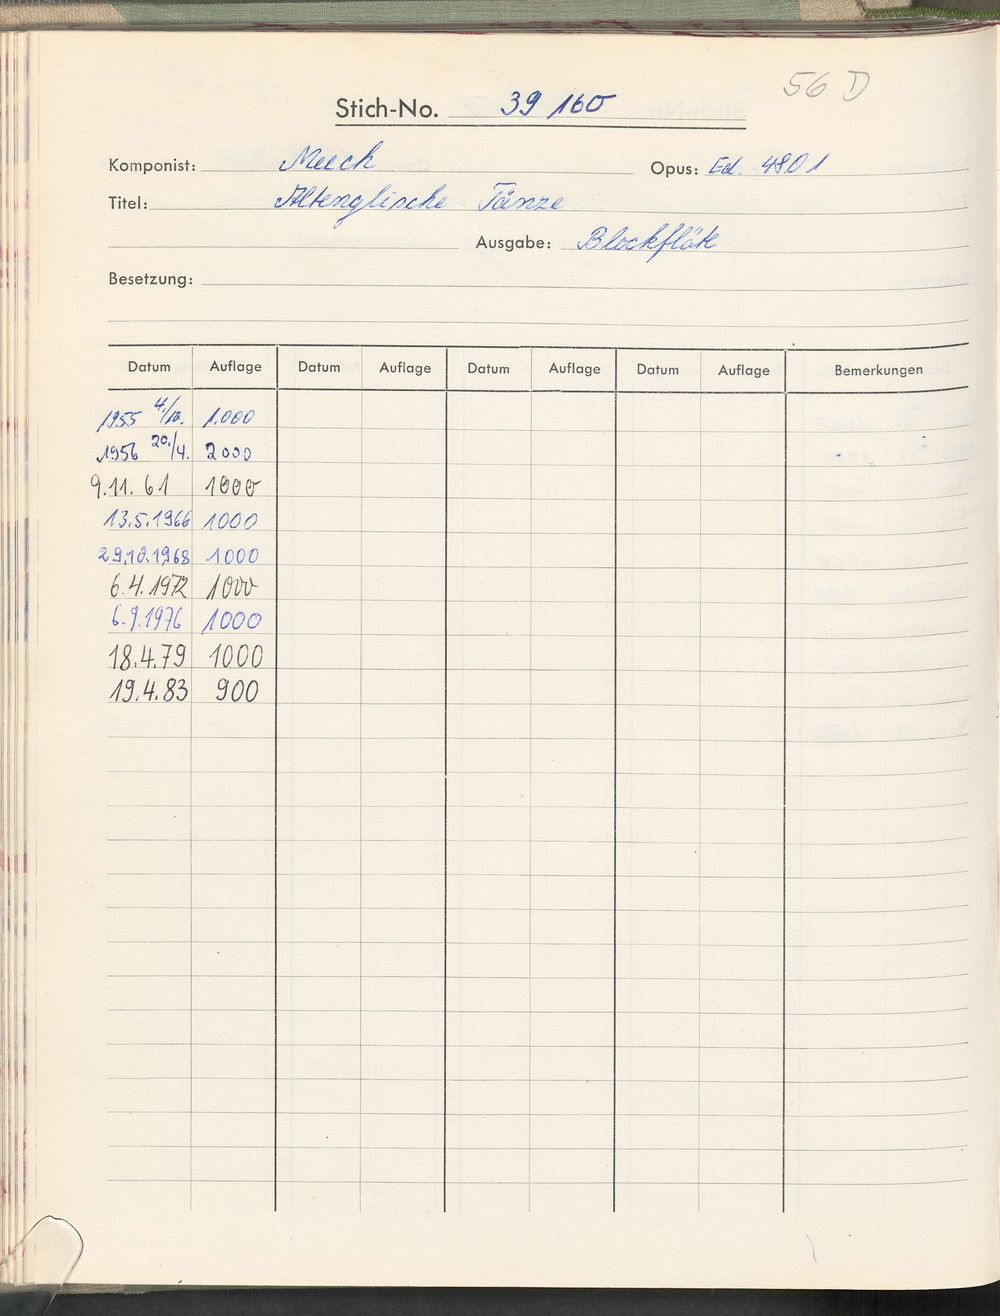 56 D
Stich-No. 39 160
Komponist: Meech Opus: Ed. 4801
Titel: Altenglische Tänze
Ausgabe: Blockflöte
Besetzung:
Datum Auflage Datum Auflage Datum Auflage Datum Auflage Bemerkungen
1955 4./10. 1.000
1956 20./4. 2000
9.11.61 1000
13.5.1966 1000
29.10.1968 1000
6.4.1972 1000
6.9.1976 1000
18.4.79 1000
19.4.83 900